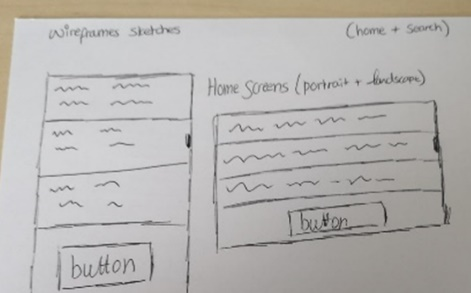 wireframes sketches
(home + search)
Home Screens (portrait + landscape)
button
button